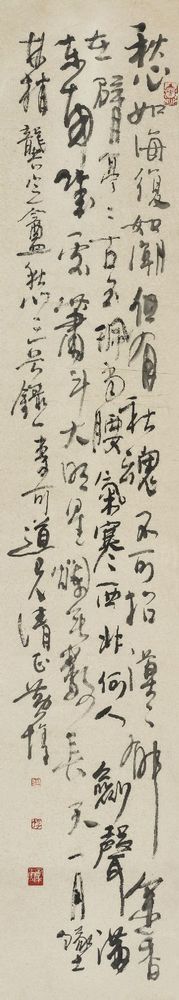 秋心如海復如潮但有秋魂不可招漠〻鬱金香
在臂亭〻古玉珮當腰氣寒西北何人劍聲滿
東南幾處簫斗大明星爛無數長天一月墜
林梢 龔定盦秋心三首錄一 可道兄清正 黃惇